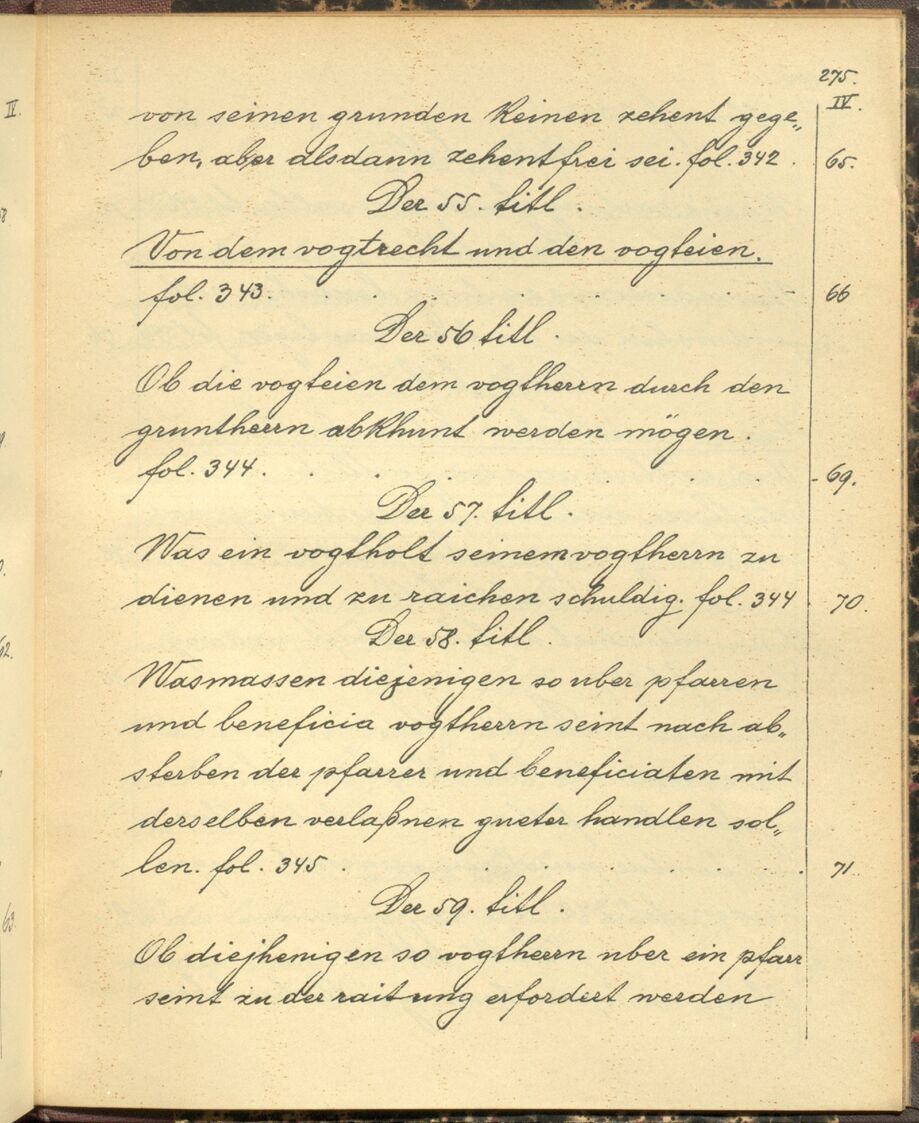 275.
IV.
von seinen grunden keinen zehent gege„
ben, aber alsdann zehentfrei sei. fol. 342 . 65.
Der 55. titl .
Von dem vogtrecht und den vogteien.
fol. 343. . . 66
Der 56 titl .
Ob die vogteien dem vogtherrn durch den
gruntherrn abkhunt werden mögen .
fol. 344. . . . 69.
Der 57. titl .
Was ein vogtholt seinem vogtherrn zu
dienen und zu raichen schuldig. fol. 344 . 70.
Der 58. titl .
Wasmassen diejenigen so uber pfarren
und beneficia vogtherrn seint nach ab„
sterben der pfarrer und beneficiaten mit
derselben verlaßnen gueter handlen sol„
len. fol. 345 . . . . 71
Der 59. titl .
Ob diejhenigen so vogtherrn uber ein pfarr
seint zu der raitung erfordert werden
IV.
63.